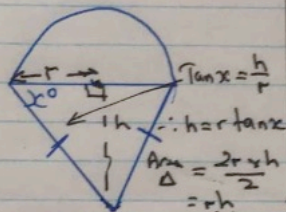 r
x°
h
Tan x = h/r
∴ h = r tan x
Area Δ = 2r × h / 2
= rh